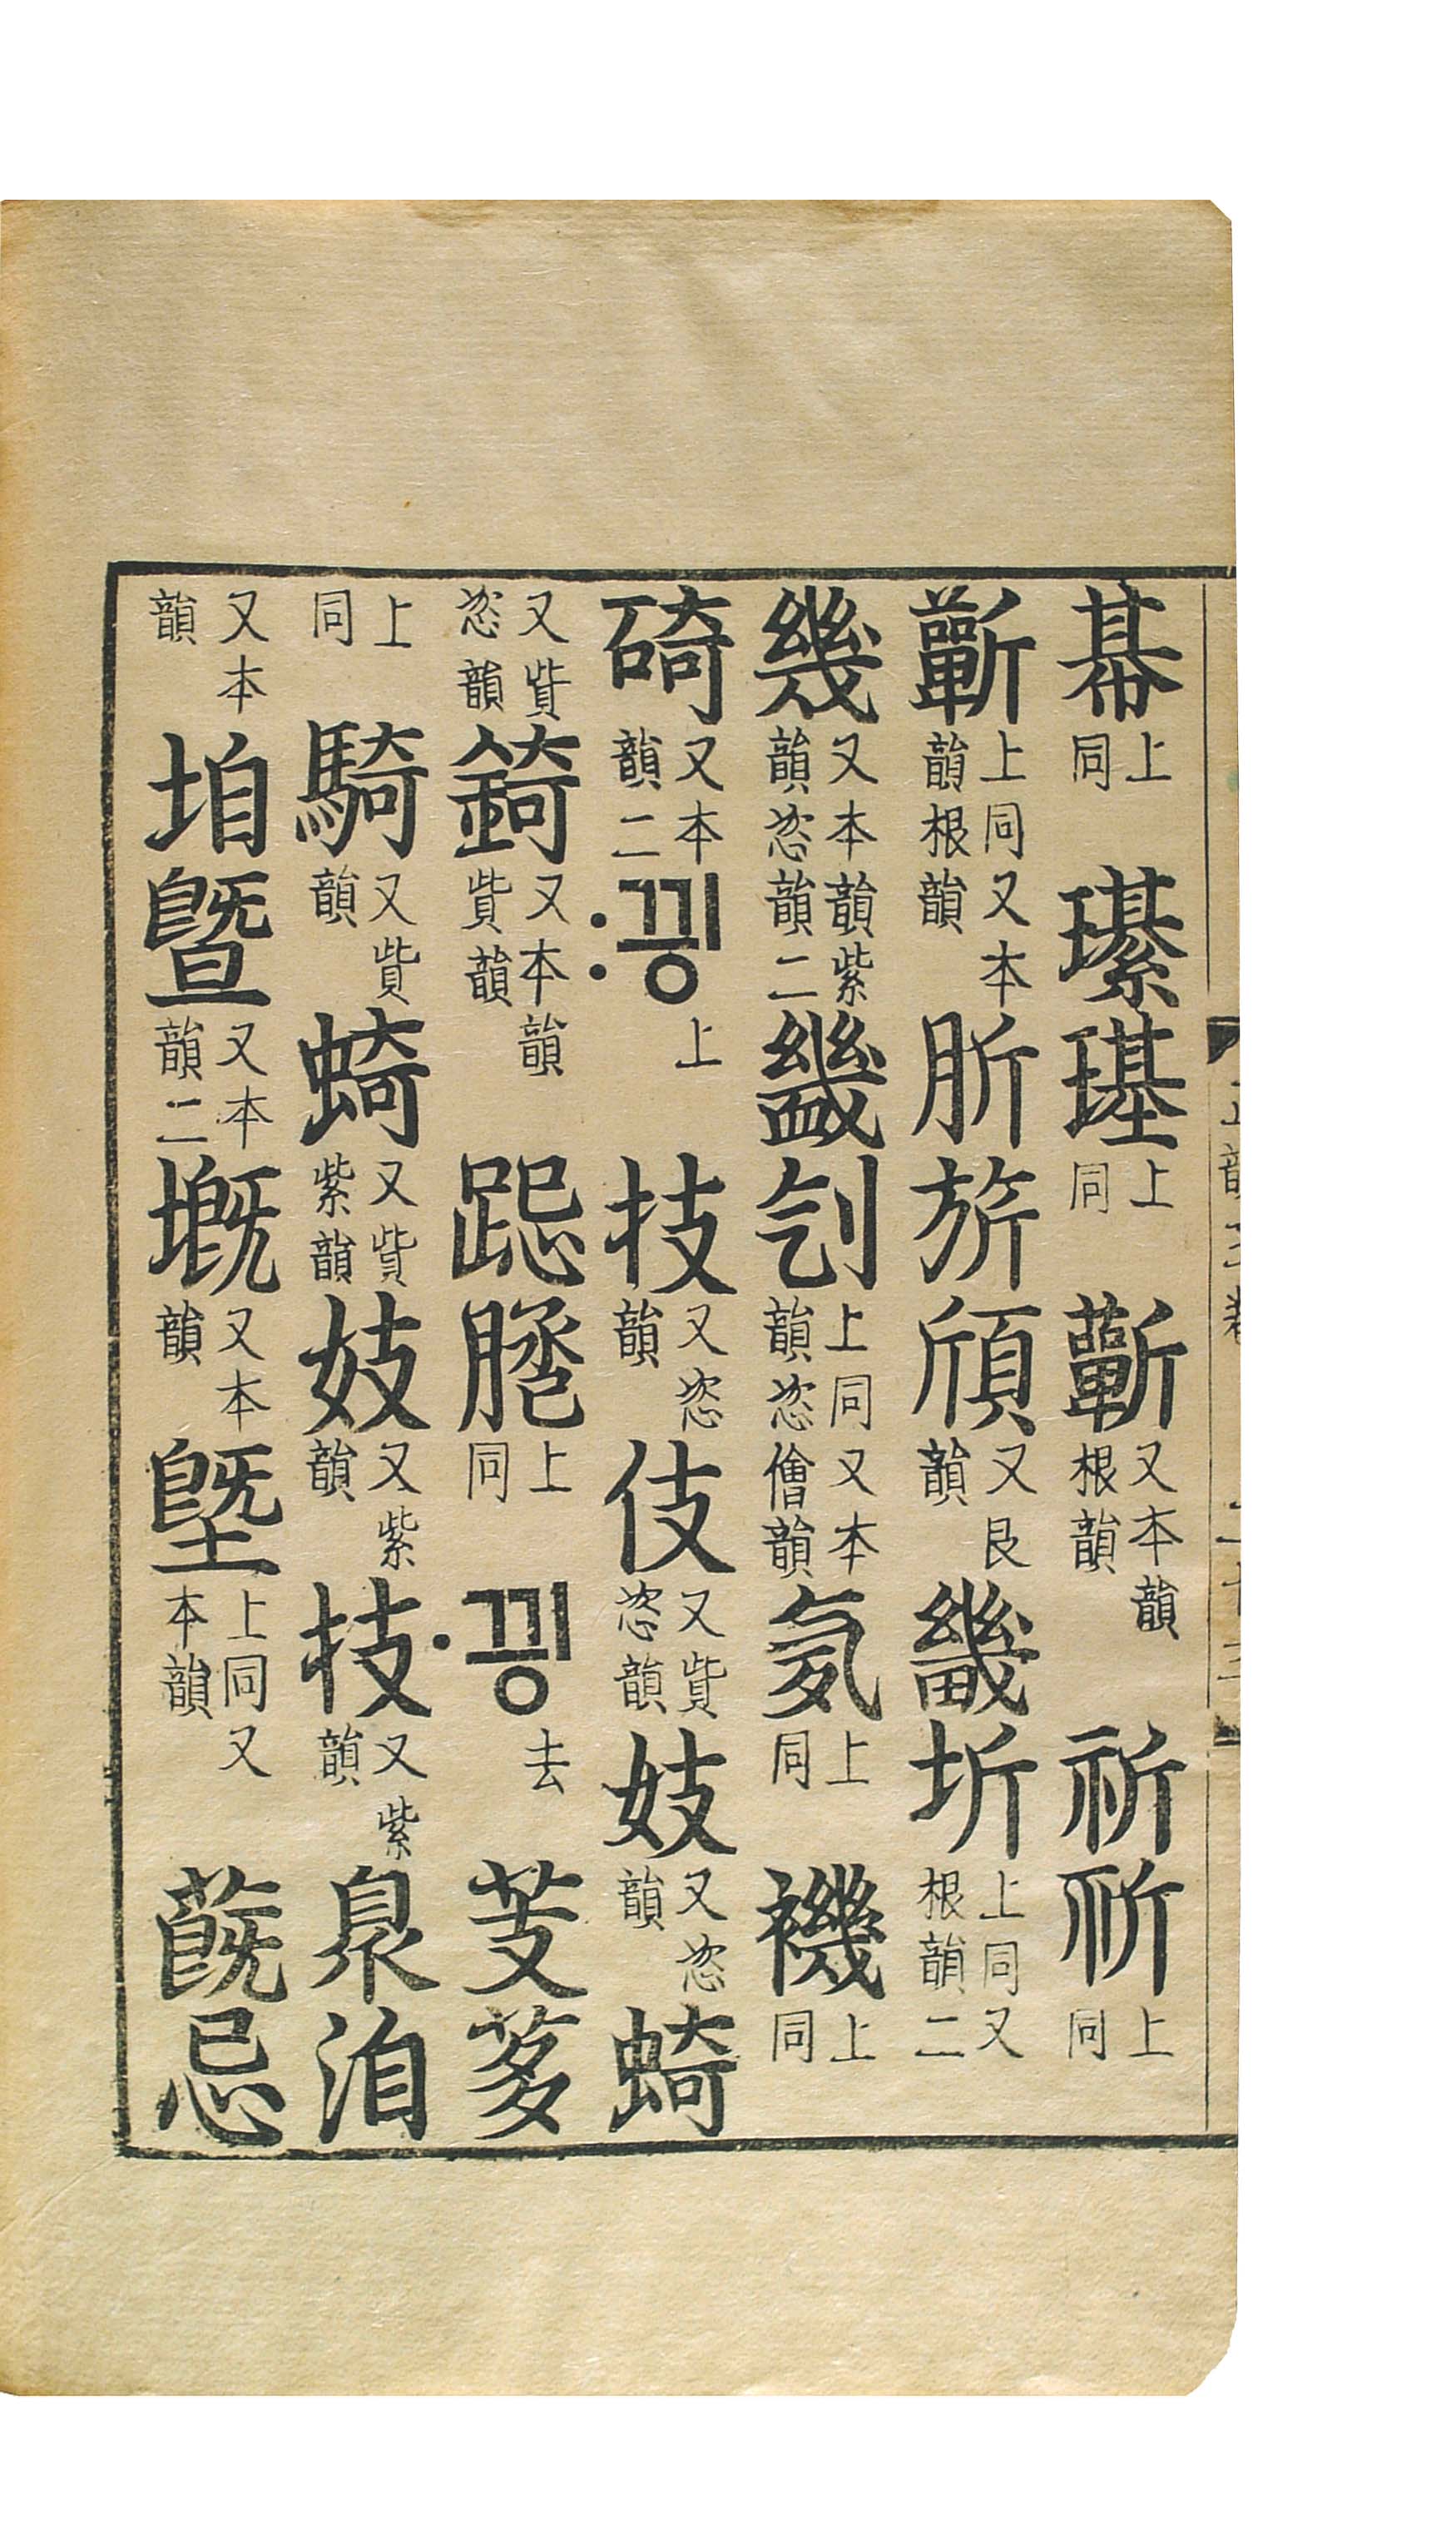 上同 璂 上同 蘄 又本韻根韻 祈 祈 上同
蘄 上同又本韻根韻 肵 旂 頎 又艮韻 畿 圻 上同又根韻二
幾 又本韻紫韻恣韻二 刉 上同又本韻恣儈韻 上同 禨 上同
碕 又本韻二 〯끵 上 技 又恣韻 伎 又貲恣韻 妓 又恣韻
又貲恣韻 錡 又本韻貲韻 跽 上同 〮끵 去 芰 茤
上同 騎 又貲韻 又貲紫韻 妓 又紫韻 技 又紫韻 臮 洎
又本韻 垍 暨 又本韻二 又本韻 墍 上同又本韻 蔇 忌